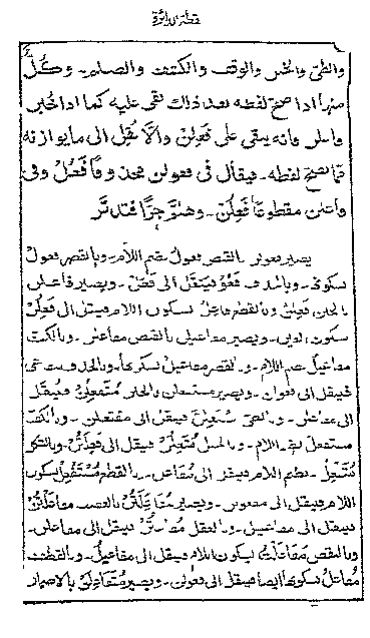 والطيّ والخبن والوقف والكشف والصلم وكلّ
منها اذا صحّ لفظه بعد ذلك بقى عليه كما اذا خبن
فاعلن فانه يبقى على فَعِلُن والّا نُقل الى ما يوازنه
ممّا يصحّ لفظه فيقال فى فعولن محذوفا فَعَلْ وفى
فاعلن مقطوعا فَعْلُن وهلمّ جرّا فتدبّر
يصير فعولن بالقبض فعولُ بضم اللام وبالقصر فعولْ
بسكونها فينقل الى فَعْلُن ويصير فاعلن
بالخبن فَعِلُن وبالقطع فاعلْ بسكون اللام فينقل الى فَعْلُن
بسكون ويصير مفاعيلن بالقبض مفاعلن وبالكف
مفاعيلُ بضم اللام وبالقصر مفاعيلْ بسكونها وبالحذف مفاعى
فينقل الى فعولن ويصير مستفعلن بالخبن مُتَفْعِلُن فينقل
الى مفاعلن وبالطى مُسْتَعِلُن فينقل الى مفتعلن وبالكف
مستفعلُ بضم اللام وبالخبل مُتَعِلُن فينقل الى فَعِلَتُن وبالشكل
بضم اللام فينقل الى مُفاعلُ وبالقطع مُسْتَفْعِلْ بسكون
اللام فينقل الى مفعولن ويصير مُفَاعَلَتُن بالعصب مفاعَلْتُن
فينقل الى مفاعيلن وبالعقل فينقل الى مفاعلن
وبالنقص مفاعَلْتُ فينقل الى مفاعيلُ وبالقطف
مفاعلْ بسكونها ايضا فينقل الى فعولن ويصير مُتَفَاعِلُن بالاضمار